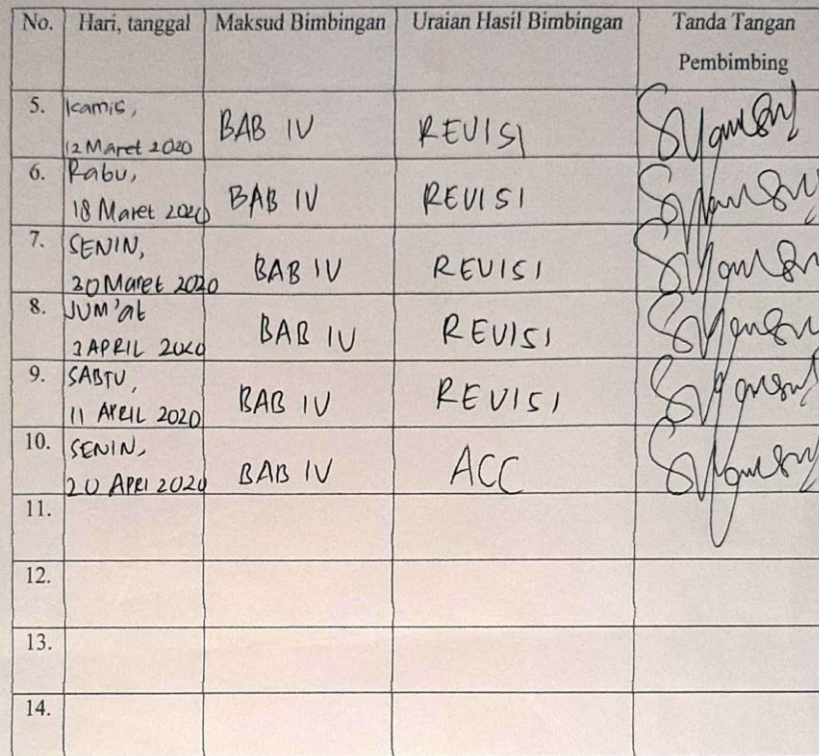 No. Hari, tanggal Maksud Bimbingan Uraian Hasil Bimbingan Tanda Tangan
Pembimbing
5. Kamis,
12 Maret 2020 BAB IV REVISI
6. Rabu,
18 Maret 2020 BAB IV REVISI
7. SENIN,
30 Maret 2020 BAB IV REVISI
8. JUM'at
3 APRIL 2020 BAB IV REVISI
9. SABTU,
11 APRIL 2020 BAB IV REVISI
10. SENIN,
20 APRI 2020 BAB IV ACC
11.
12.
13.
14.